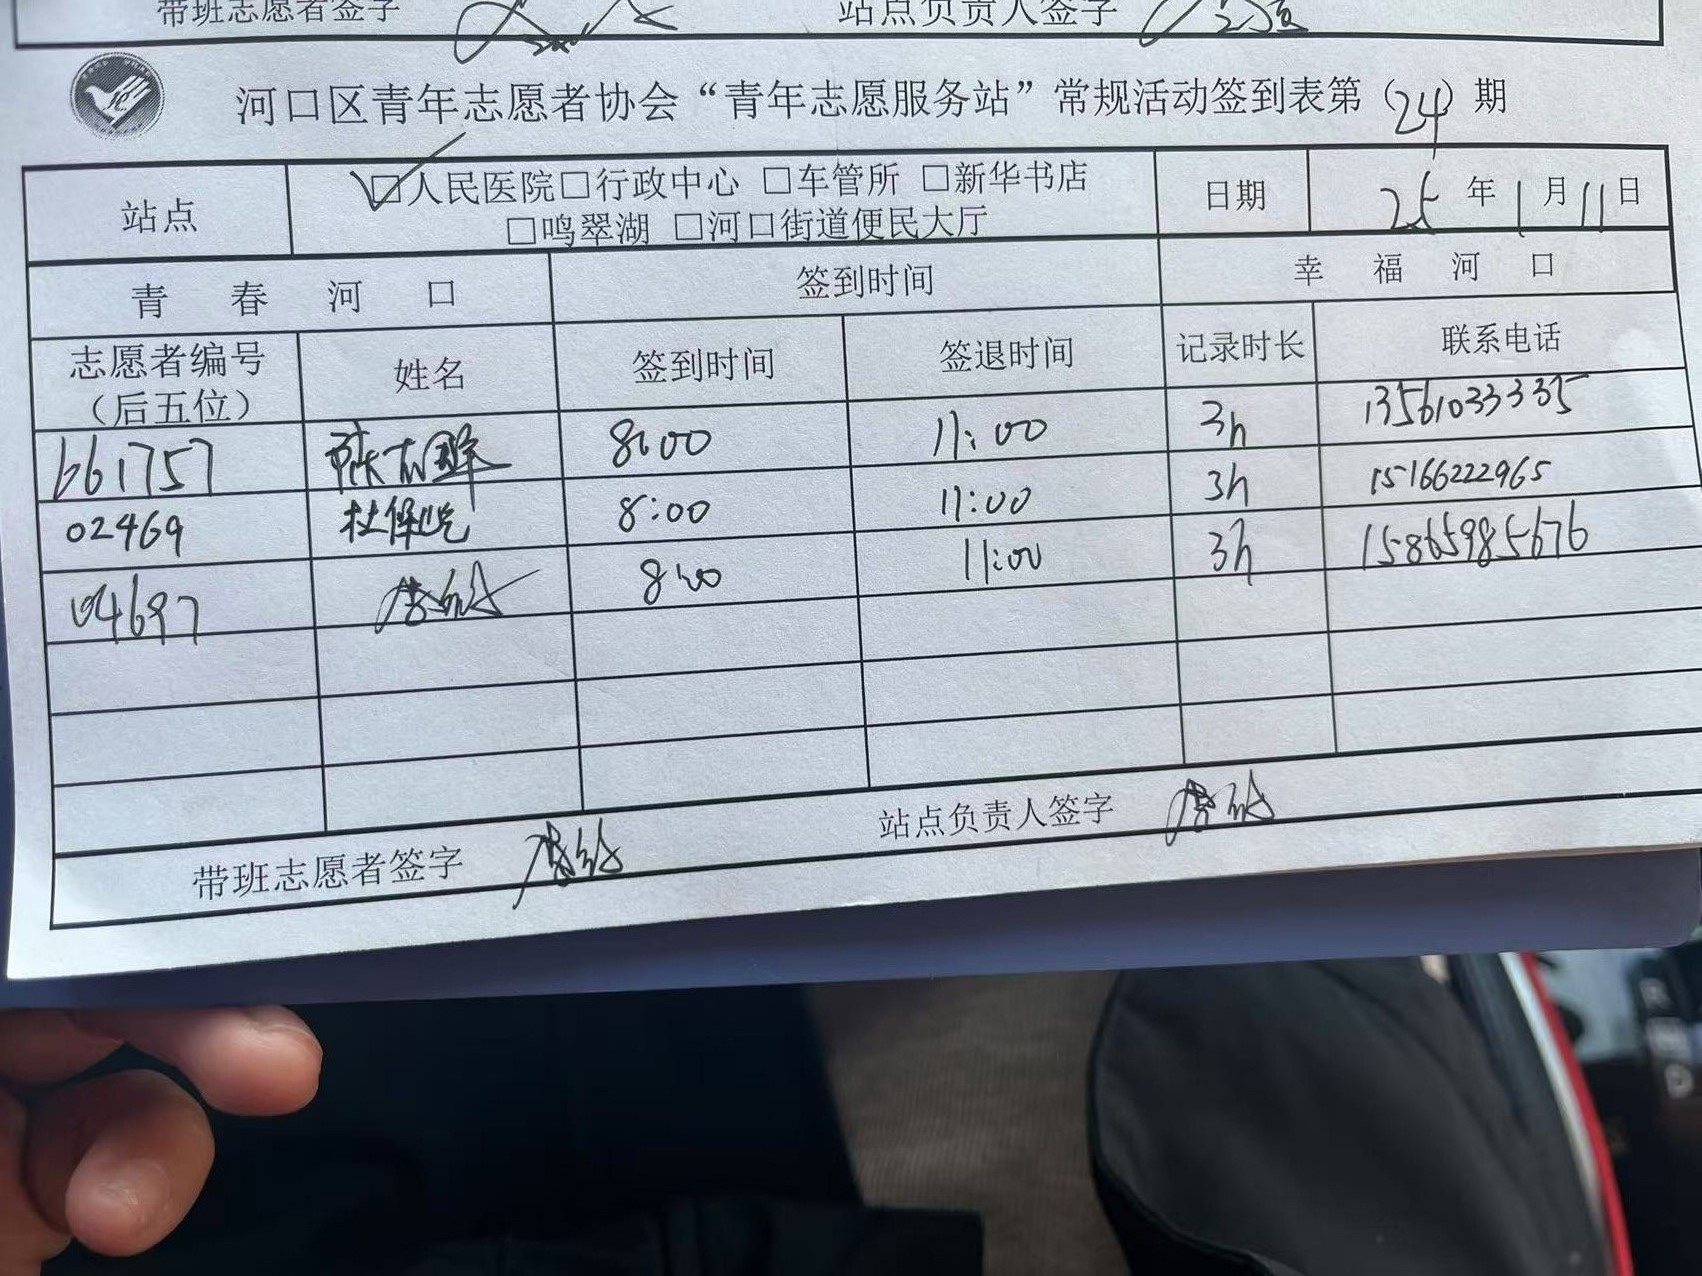 带班志愿者签字 站点负责人签字
河口区青年志愿者协会“青年志愿服务站”常规活动签到表第（24）期
站点 ☑人民医院□行政中心 □车管所 □新华书店 日期 25年1月11日
□鸣翠湖 □河口街道便民大厅
青春河口 签到时间 幸福河口
志愿者编号 姓名 签到时间 签退时间 记录时长 联系电话
（后五位）
661757 8:00 11:00 3h 13561033335
02469 8:00 11:00 3h 15166222965
04697 8:00 11:00 3h 15865985676
带班志愿者签字 站点负责人签字